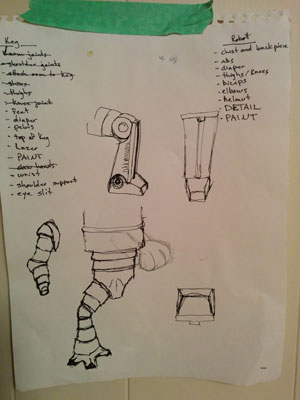 Key
~~Knee joints~~
~~- shoulder joints~~
~~- attach arm to key~~
~~- shins~~
~~- thighs~~
~~- knee joint~~
- Feet
- diaper
- pelvis
- top of key
- Lazer
- PAINT
~~- hands~~
- waist
- shoulder support
- eye slit
Robot
- chest and back piece
- abs
- diaper
- thighs/knees
- biceps
- elbows
- helmet
- DETAIL
- PAINT